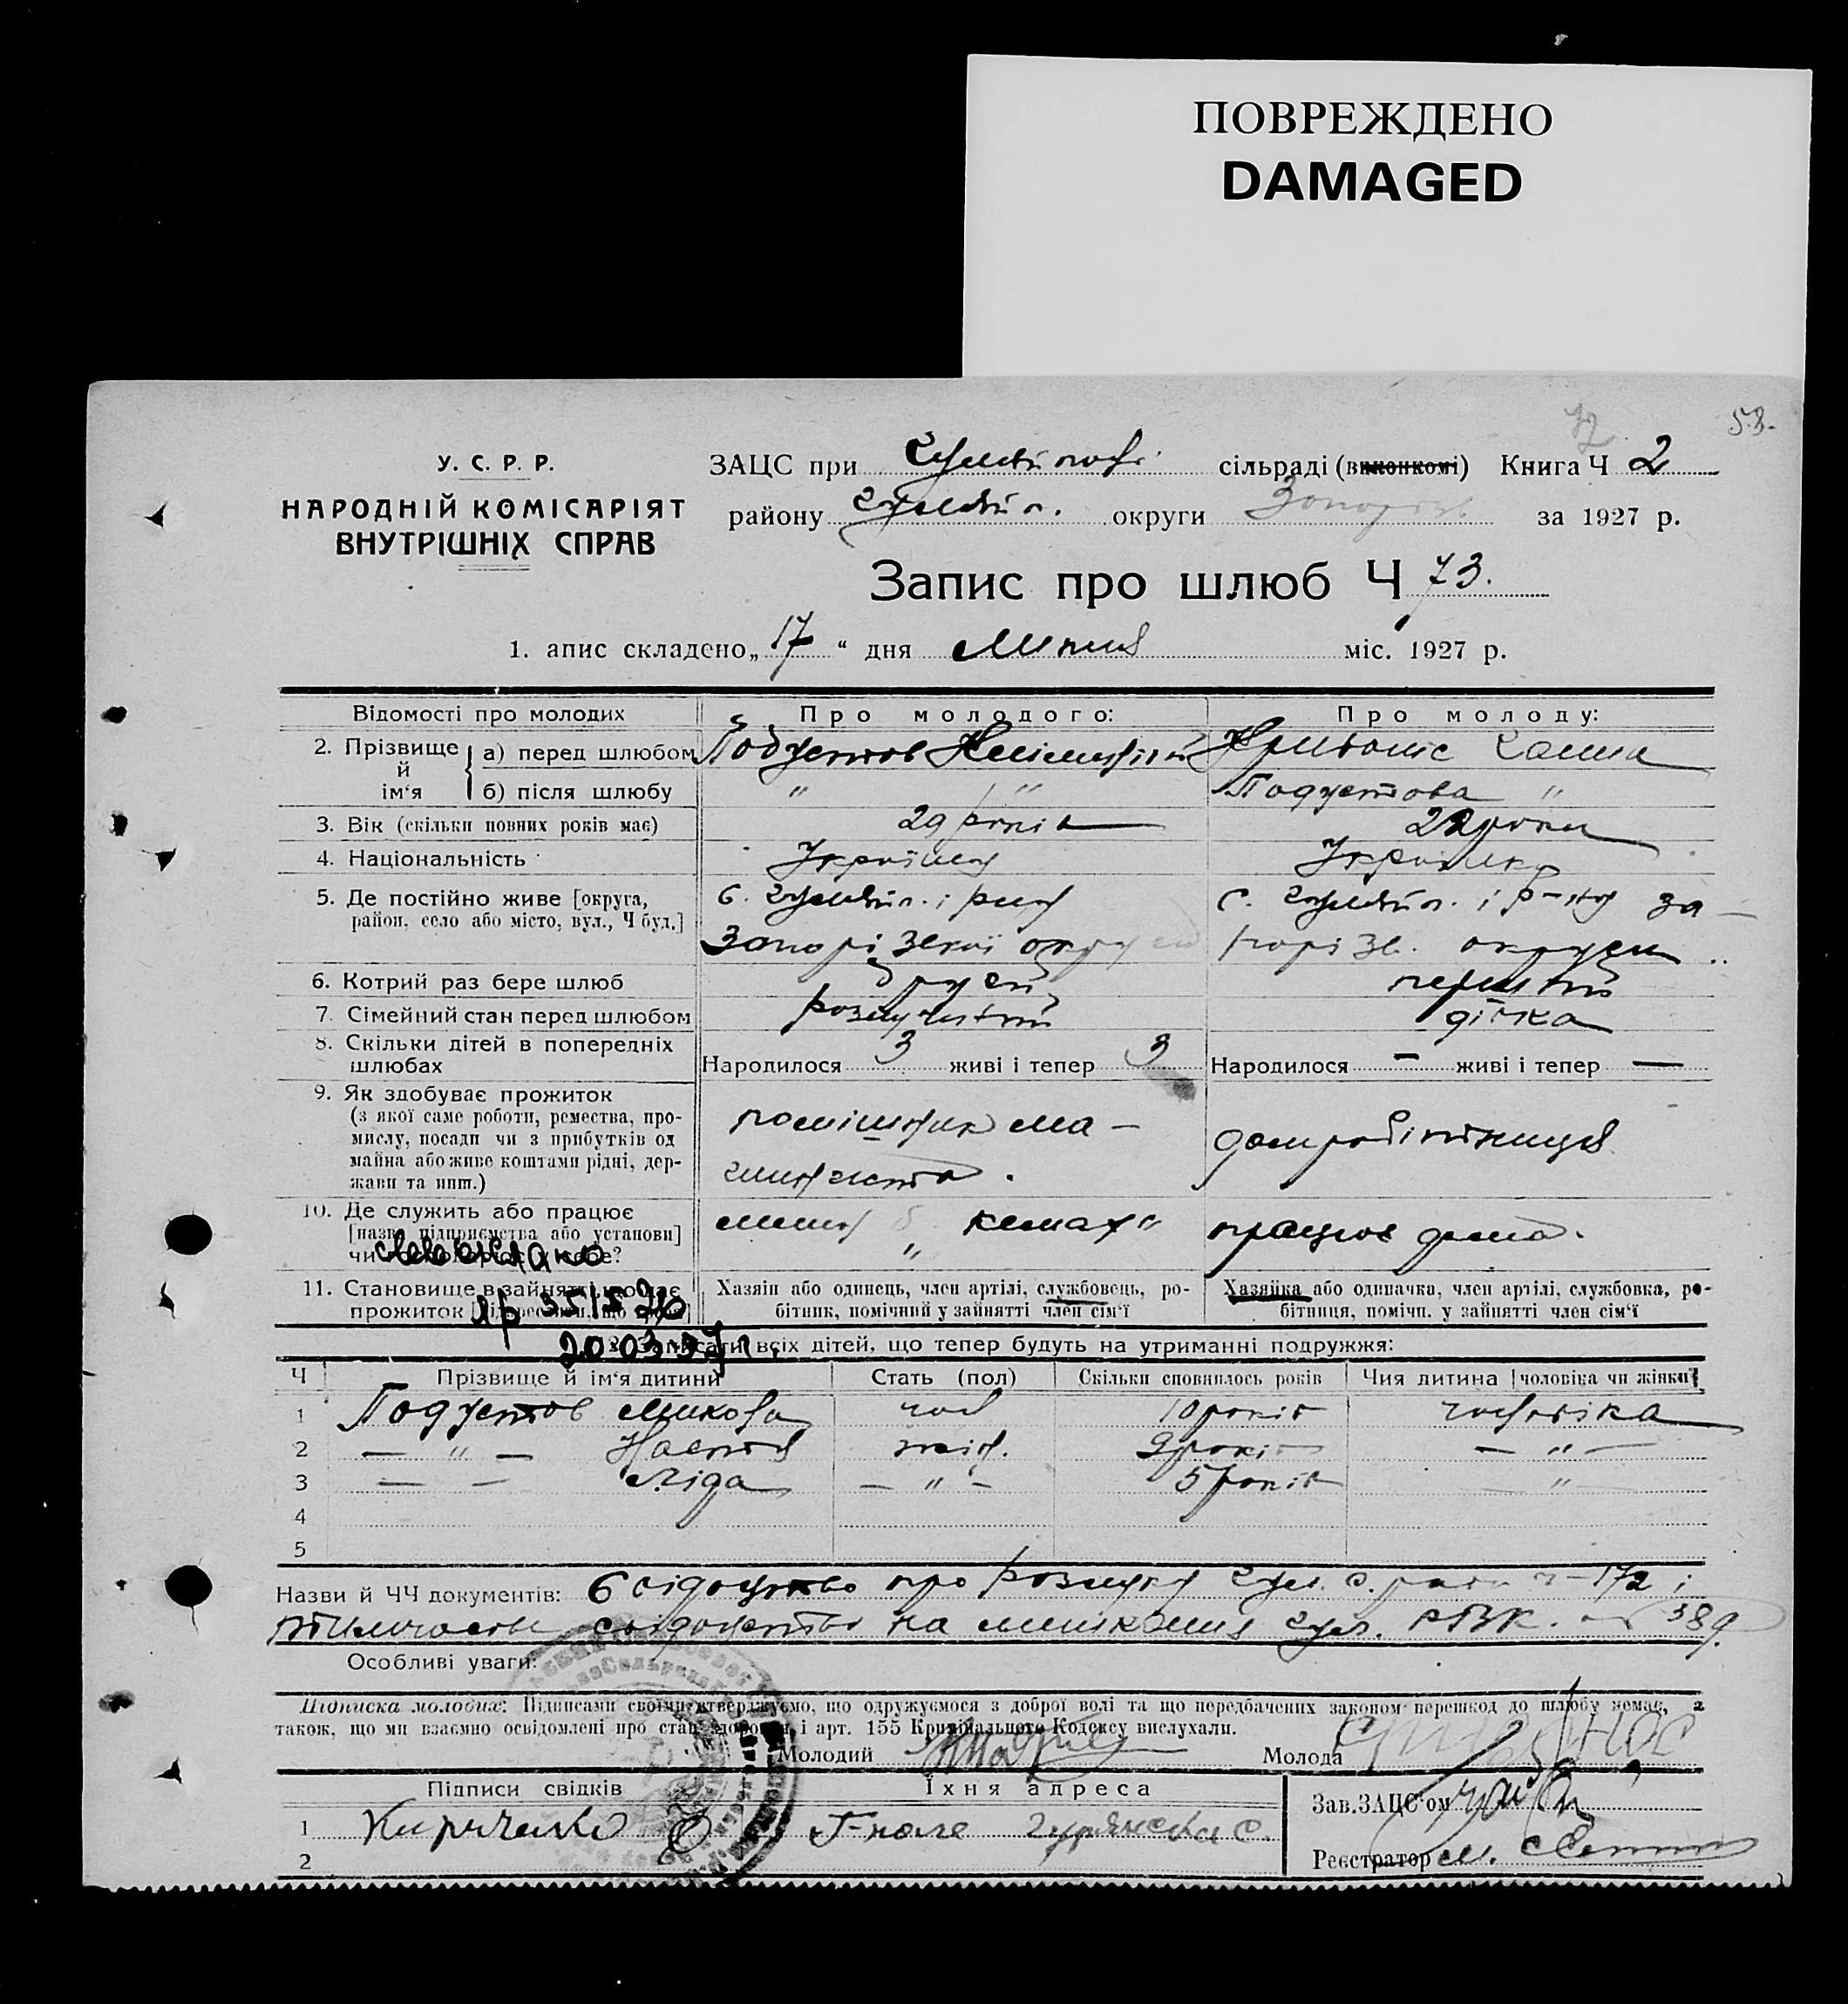 ПОВРЕЖДЕНО
DAMAGED
53.
У. С. Р. Р.
НАРОДНІЙ КОМІСАРІЯТ
ВНУТРІШНІХ СПРАВ
ЗАЦС при сільраді (виконкомі) Книга Ч 2
району округи за 1927 р.
Запис про шлюб Ч 73.
1. апис складено „ 17 “ дня Липня міс. 1927 р.
Відомості про молодих Про молодого: Про молоду:
2. Прізвище й ім‘я { а) перед шлюбом Подустов Кривоніс
б) після шлюбу " " Подустова "
3. Вік (скільки повних років має) 29 років 22 роки
4. Національність Українец Українка
5. Де постійно живе [округа,
район, село або місто, вул., Ч буд.]
с. Гуляйп. і рну с. Гуляйп. і р-ну За-
Запорізької округи поріз. округи
6. Котрий раз бере шлюб другий перший
7. Сімейний стан перед шлюбом розлучений дівка
8. Скільки дітей в попередніх
шлюбах
Народилося 3 живі і тепер 3 Народилося — живі і тепер —
9. Як здобуває прожиток
(з якої саме роботи, ремества, про-
мислу, посади чи з прибутків од
майна або живе коштами рідні, дер-
жави та инш.)
помішник ма-
шиніста.
домробітниця
10. Де служить або працює
[назва підприємства або установи]
чи у себе?
працює дома.
11. Становище в зайнятті, що дає
прожиток
Хазяїн або одинець, член артілі, службовець, ро-
бітник, помічний у зайнятті член сім‘ї
Хазяйка або одиначка, член артілі, службовка, ро-
бітниця, помічн. у зайнятті член сім‘ї
20.03.
Записати всіх дітей, що тепер будуть на утриманні подружжя:
Ч Прізвище й ім‘я дитини Стать (пол) Скільки сповнилось років Чия дитина [чоловіка чи жінки]
1 Подустов Микола чол 10 років чоловіка
2 — " — Настя жін. 9 років — " —
3 — — Ліда — " — 5 років — " —
4
5
Назви й ЧЧ документів: Свідоцтво про розлуку Гул. с. ради ч-172 і
свідоцтво на Гул. РВК. 389
Особливі уваги:
Підписка молодих: Підписами своїми стверджуємо, що одружуємося з доброї волі та що передбачених законом перешкод до шлюбу немає, а
також, що ми взаємно освідомлені про стан здоров‘я і арт. 155 Кримінального Кодексу вислухали.
Молодий Молода
Підписи свідків Їхня адреса
Зав.ЗАЦС‘ом
1 Кириченко Г-поле
2
Реєстратор